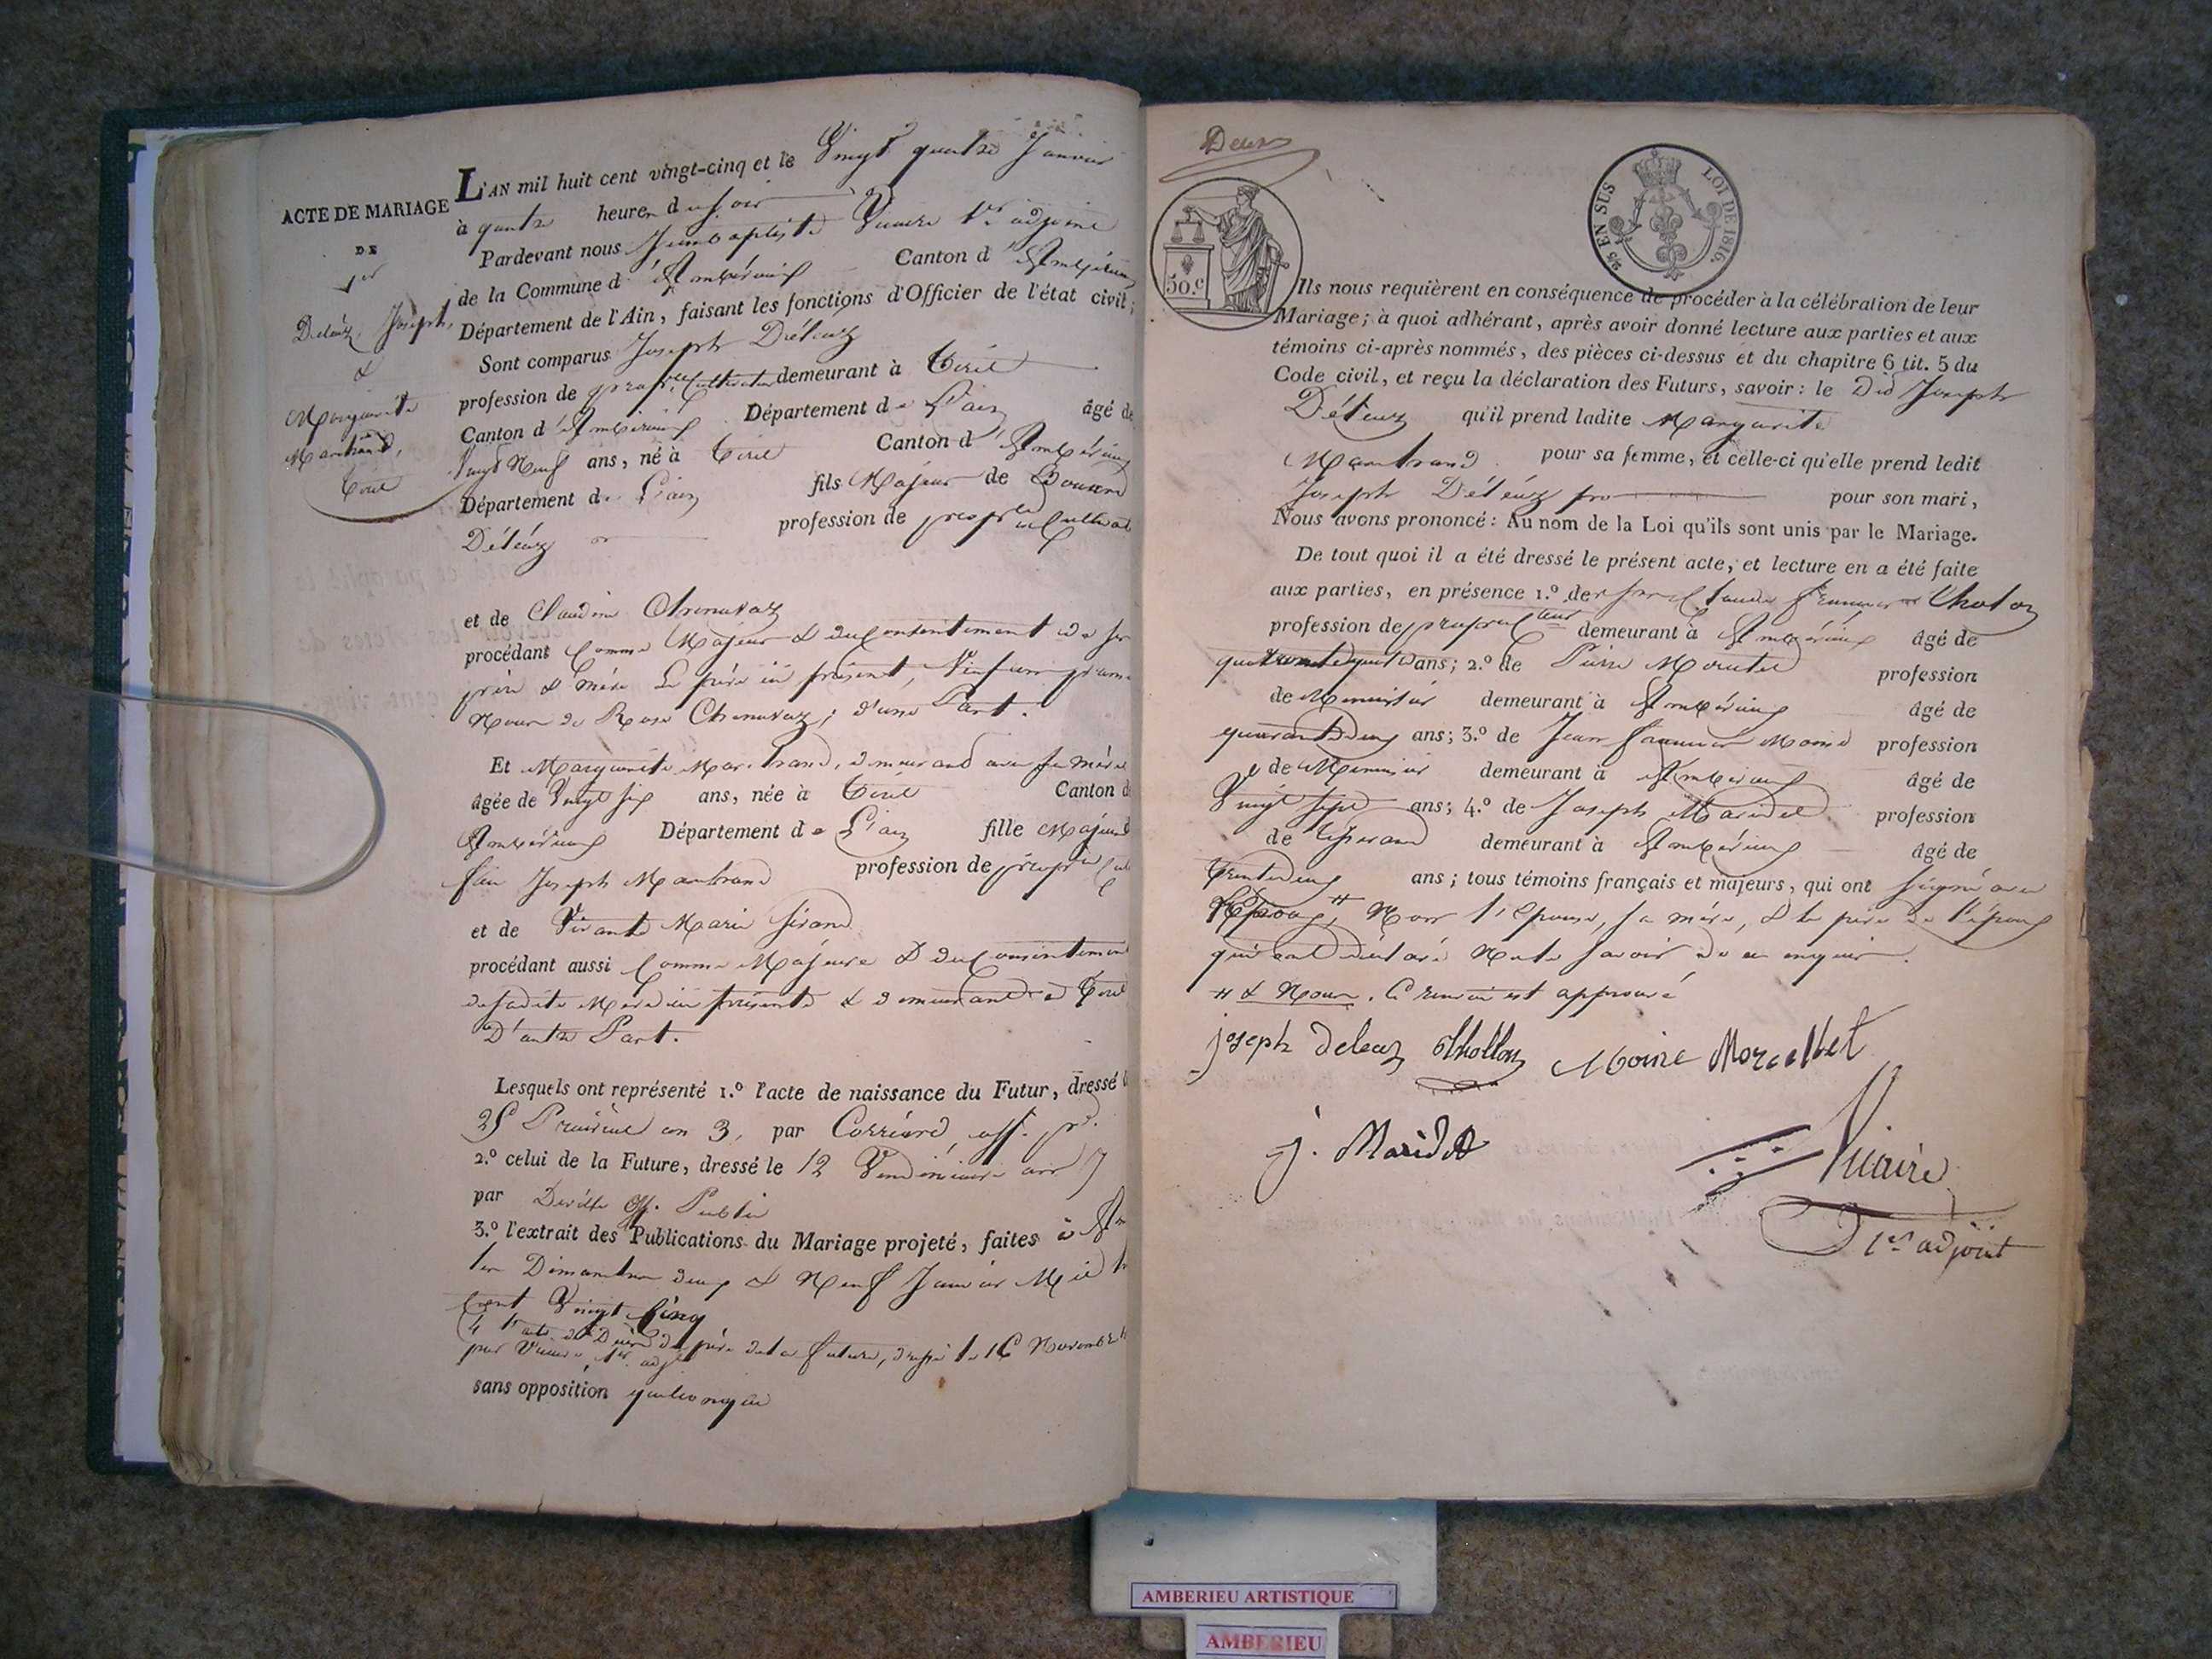 ACTE DE MARIAGE
DE
1er
Déléaz Joseph,
&
Marguerite
Marchand,
L'AN mil huit cent vingt-cinq et le Vingt quatre Janvier
à quatre heures du soir
Pardevant nous Jeanbaptiste Vicaire 1er adjoint
de la Commune d'Ambérieux Canton d'Ambérieux
Département de l'Ain, faisant les fonctions d'Officier de l'état civil;
Sont comparus Joseph Déléaz
profession de propre Cultivateur demeurant à Tiret
Canton d'Ambérieux Département de L'ain âgé de
Vingt Neuf ans, né à Tiret Canton d'Ambérieux
Département de L'ain fils Majeur de
Déléaz profession de propre Cultivat
et de Claudine Chenavaz
procédant Comme Majeur & du Consentement de ses
père & mère Le père ici présent,
de Rose Chenavaz; d'une Part.
Et Marguerite demeurant avec sa mère
âgée de Vingt six ans, née à Tiret Canton d
Ambérieux Département de L'ain fille Majeure
feu Joseph profession de propre
et de Marie Sirand
procédant aussi Comme Majeure & du Consentement
de sadite Mère ici présente & demeurant à Tiret
D'autre Part.
Lesquels ont représenté 1.º l'acte de naissance du Futur, dressé le
25 Prairial an 3, par off. p.
2.º celui de la Future, dressé le 12 Vendémiaire an 7
par off. Public
3.º l'extrait des Publications du Mariage projeté, faites à Am
les Dimanches deux & Neuf Janvier Mil h
Cent Vingt Cinq
4º l'acte de Décès du père de la future, dressé le 16 Novembre
par Vicaire, 1er adjt
sans opposition quelconque
Deux
50.c
25 EN SUS
LOI DE 1816.
Ils nous requièrent en conséquence de procéder à la célébration de leur
Mariage; à quoi adhérant, après avoir donné lecture aux parties et aux
témoins ci-après nommés, des pièces ci-dessus et du chapitre 6 tit. 5 du
Code civil, et reçu la déclaration des Futurs, savoir: le Dit Joseph
Déléaz qu'il prend ladite Marguerite
pour sa femme, et celle-ci qu'elle prend ledit
Joseph Déléaz pour son mari,
Nous avons prononcé: Au nom de la Loi qu'ils sont unis par le Mariage.
De tout quoi il a été dressé le présent acte, et lecture en a été faite
aux parties, en présence 1.º de Claude
profession de demeurant à Ambérieux âgé de
ans; 2.º de Pierre profession
de Menuisier demeurant à Ambérieux âgé de
quarante deux ans; 3.º de Jean Moine profession
de Menuisier demeurant à Ambérieux âgé de
Vingt sept ans; 4.º de Joseph Maridet profession
de Tisserand demeurant à Ambérieux âgé de
trente deux ans; tous témoins français et majeurs, qui ont Signé avec
l'Epoux, # Non l'Epouse, sa mère, & le père de l'époux
qui ont déclaré Ne le savoir de ce enquis.
# & Nous. Ce renvoi est approuvé
joseph deleaz thollon Moine Morcellet
j. Maridet
Vicaire
1er adjoint
AMBERIEU ARTISTIQUE
AMBERIEU